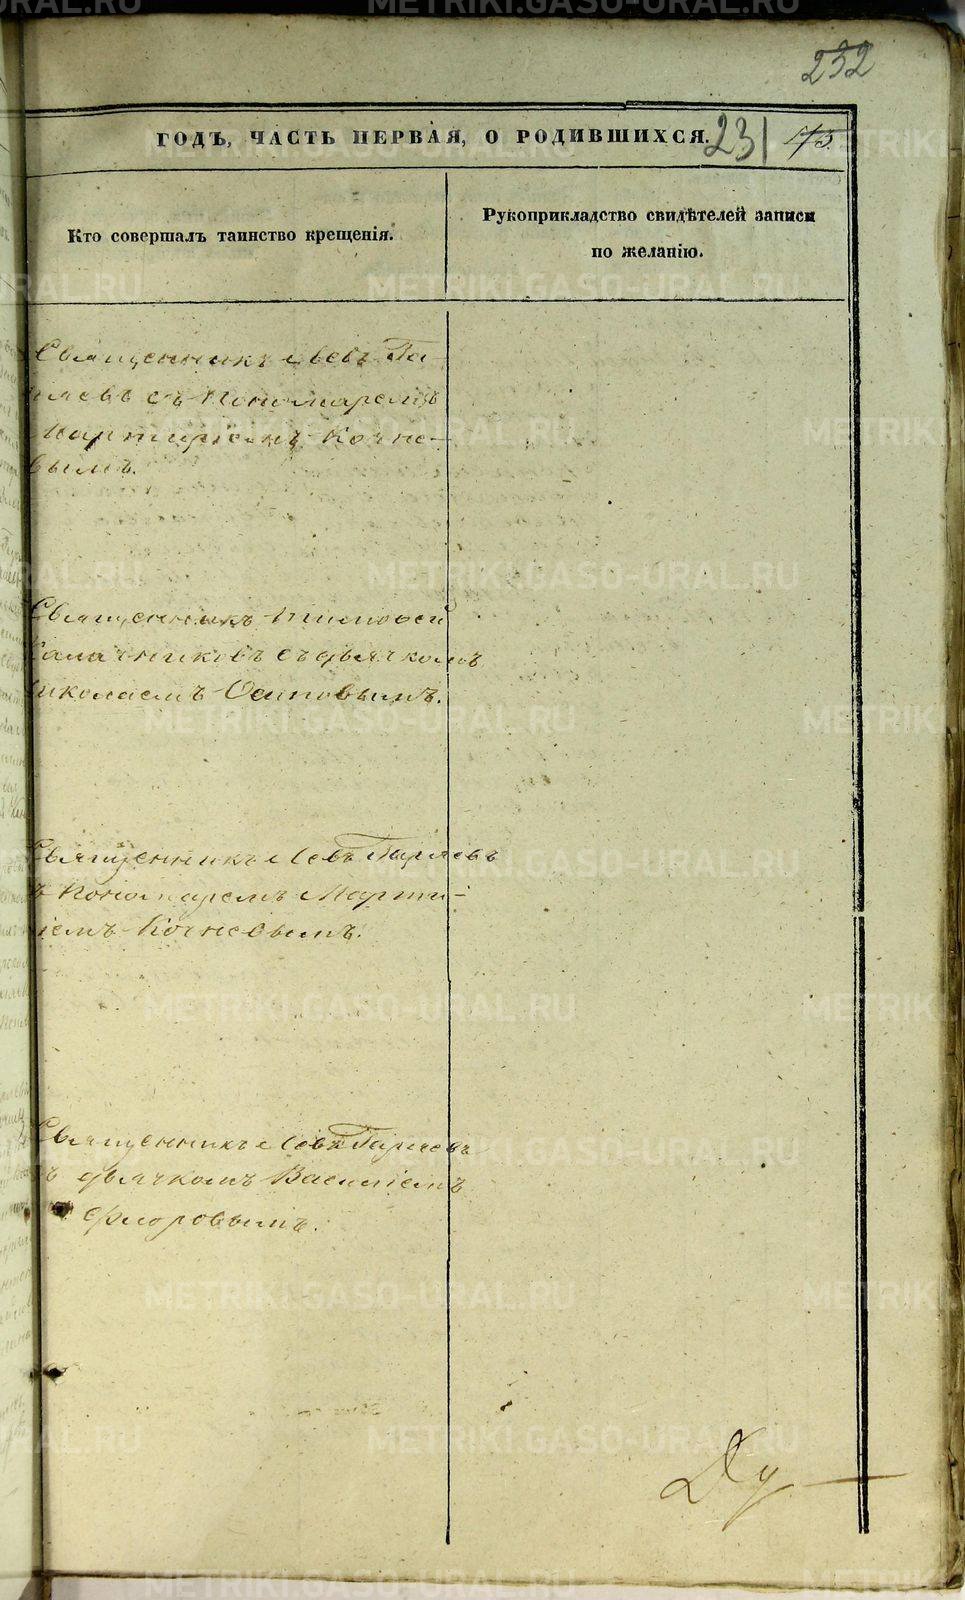 232
ГОДЪ, ЧАСТЬ ПЕРВАЯ, О РОДИВШИХСЯ. 231
Кто совершалъ таинство крещенія.
Рукоприкладство свидѣтелей записи
по желанію.
Священникъ Левъ Га-
ряевъ съ Пономаремъ
Мартиріемъ Кочне-
вымъ.
Священникъ Тимофей
Калачниковъ съ дьячкомъ
Николаемъ Осиповымъ.
Священникъ Левъ Гаряевъ
ъ Пономаремъ Марти-
іемъ Кочневымъ.
Священникъ Левъ Гаряевъ
ъ дьячкомъ Василіемъ
Флоровымъ.
METRIKI.GASO-URAL.RU